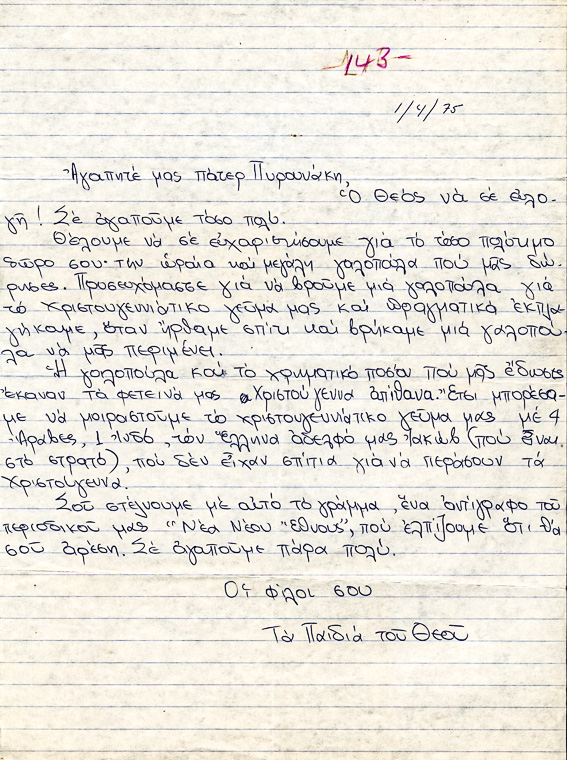 -143-
1/4/75
Ἀγαπητέ μας πάτερ Πυρουνάκη,
Ὁ Θεὸς νὰ σὲ εὐλο-
γῆ! Σὲ ἀγαποῦμε τόσο πολύ.
Θέλουμε νὰ σὲ εὐχαριστήσουμε γιὰ τὸ τόσο πολύτιμο
δῶρο σου· τὴν ὡραία καὶ μεγάλη γαλοπούλα ποὺ μᾶς δώ-
ρησες. Προσευχόμασσε γιὰ νὰ βροῦμε μιὰ γαλοπούλα γιὰ
τὸ χριστουγεννιάτικο γεῦμα μας καὶ πραγματικὰ ἐκπλα-
γήκαμε, ὅταν ἤρθαμε σπίτι καὶ βρήκαμε μιὰ γαλοπού-
λα νὰ μᾶς περιμένει.
Ἡ γαλοπούλα καὶ τὸ χρηματικὸ ποσὸν ποὺ μᾶς ἔδωσες
ἔκαναν τὰ φετεινά μας Χριστούγεννα ἀπίθανα. Ἔτσι μπορέσα-
με νὰ μοιραστοῦμε τὸ χριστουγεννιάτικο γεῦμα μας μὲ 4
Ἄραβες, 1 Ἰνδό, τὸν Ἕλληνα ἀδελφό μας Ἰακώβ (ποὺ εἶναι
στὸ στρατό), ποὺ δὲν εἶχαν σπίτια γιὰ νὰ περάσουν τὰ
Χριστούγεννα.
Σοῦ στέλνουμε μὲ αὐτὸ τὸ γράμμα, ἕνα ἀντίγραφο τοῦ
περιοδικοῦ μας "Νέα Νέου Ἔθνους", ποὺ ἐλπίζουμε ὅτι θὰ
σοῦ ἀρέση. Σὲ ἀγαποῦμε πάρα πολύ.
Οἱ φίλοι σου
Τὰ Παιδιὰ τοῦ Θεοῦ